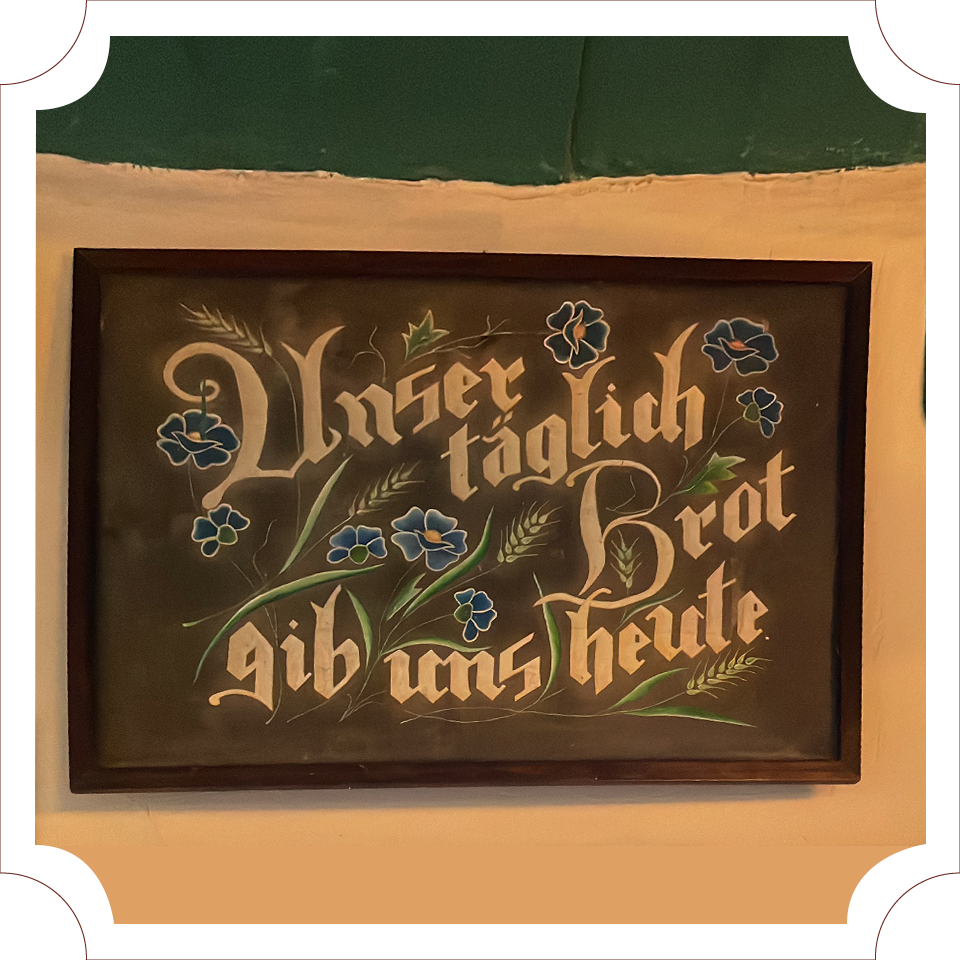 Unser
täglich
Brot
gib uns heute.